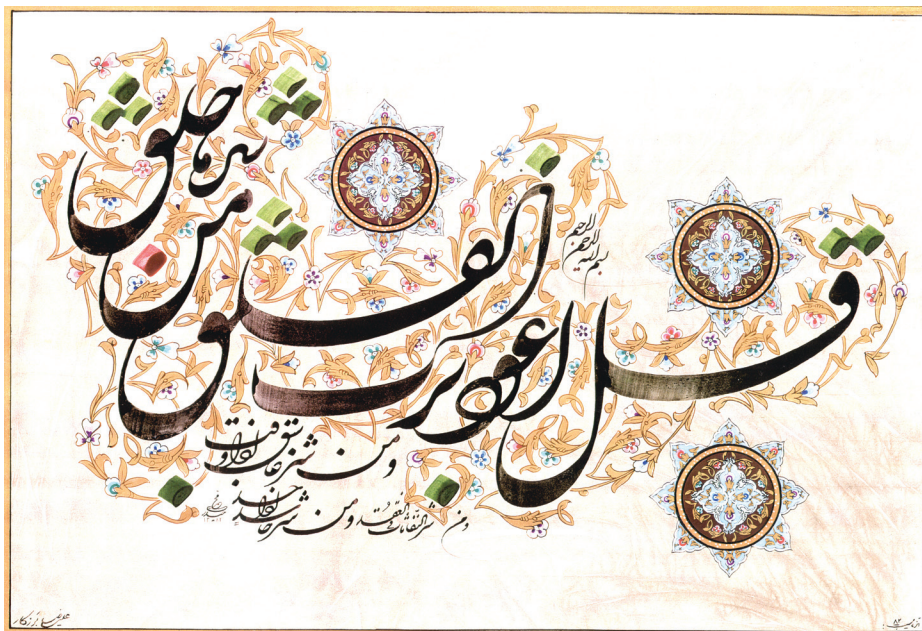 بسم الله الرحمن الرحیم
قل اعوذ برب الفلق
من شر ما خلق
و من شر غاسق اذا وقب
و من شر النفاثات فی العقد و من شر حاسد اذا حسد